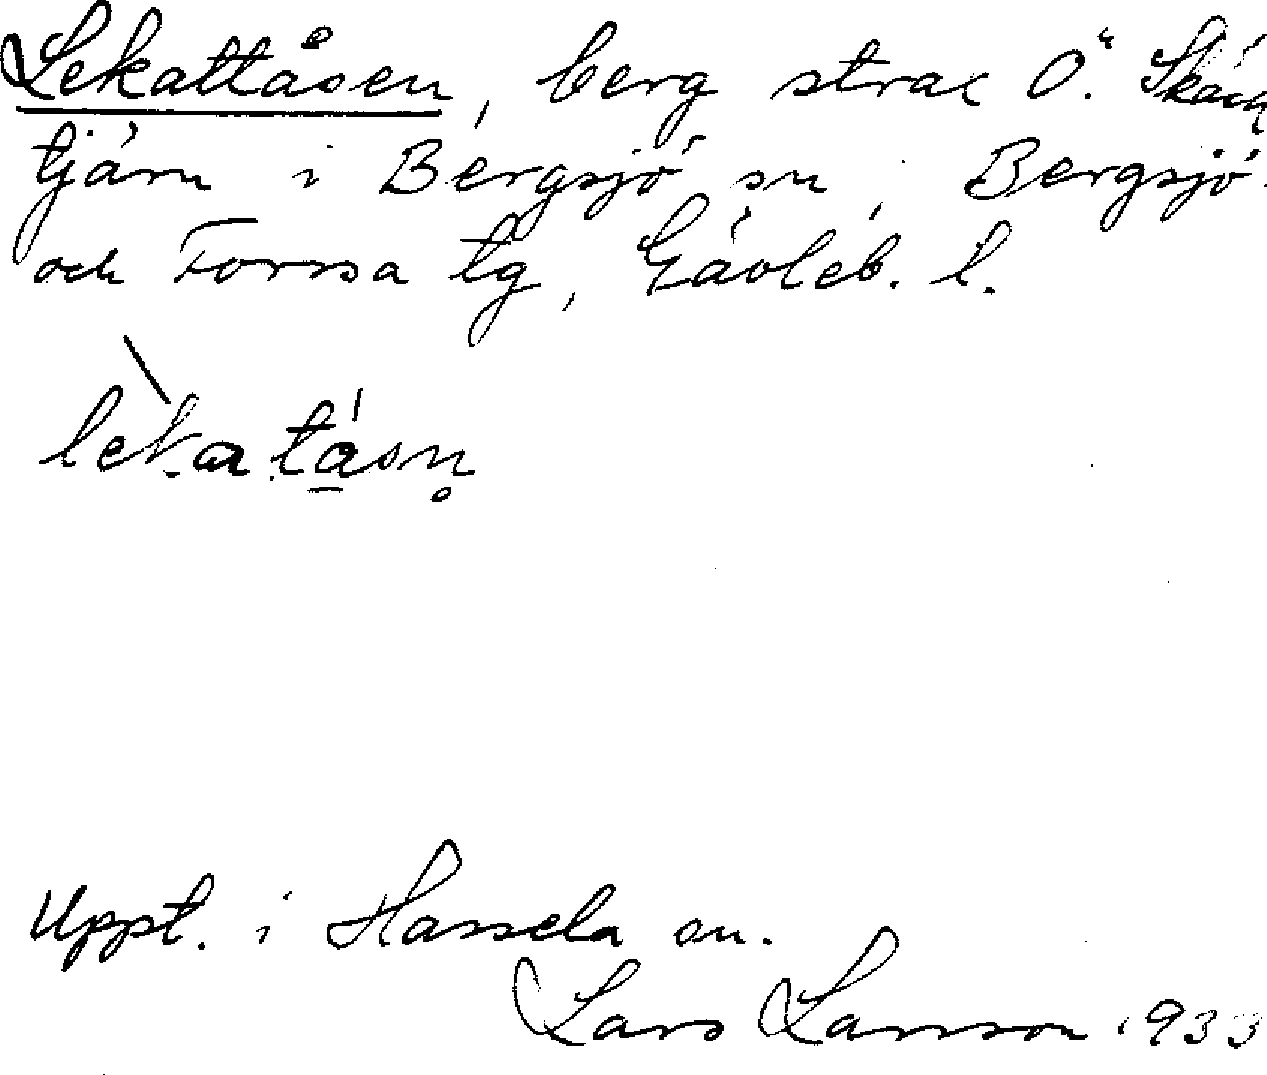 Lekattåsen, berg strax Ö.
tjärn i Bergsjö sn, Bergsjö
och Forssa tg, Gävleb. l.
lekatåsn̥
Uppt. i Hassela sn.
Lars Larsson 1933